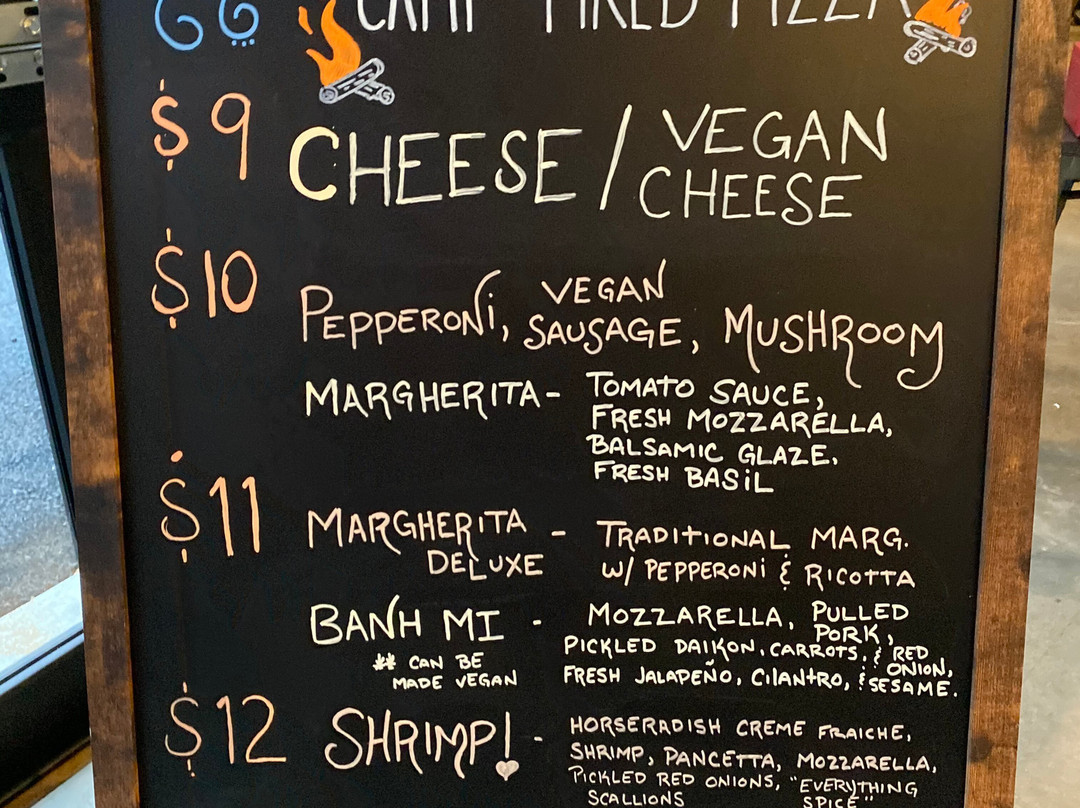 CAMP FIRED PIZZA
$9 CHEESE / VEGAN CHEESE
$10
PEPPERONI, VEGAN SAUSAGE, MUSHROOM
MARGHERITA - TOMATO SAUCE,
FRESH MOZZARELLA,
BALSAMIC GLAZE,
FRESH BASIL
$11
MARGHERITA DELUXE - TRADITIONAL MARG.
W/ PEPPERONI & RICOTTA
BANH MI - MOZZARELLA, PULLED PORK,
PICKLED DAIKON, CARROTS, & RED ONION,
FRESH JALAPEÑO, CILANTRO, & SESAME.
** CAN BE
MADE VEGAN
$12 SHRIMP! - HORSERADISH CREME FRAICHE,
SHRIMP, PANCETTA, MOZZARELLA,
PICKLED RED ONIONS, "EVERYTHING SPICE"
SCALLIONS